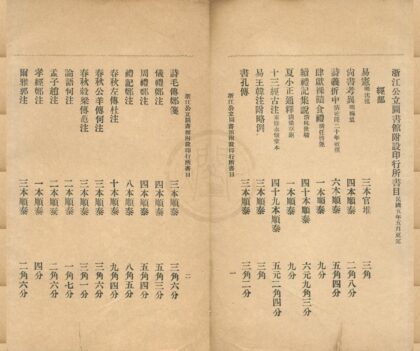 浙江公立圖書館附設印行所書目 民國五年五月改定
經部
易憲 三本官堆 三角
尚書考異 四本順泰 二角八分
詩義折中 六本順泰 五角六分
肆獻祼饋食禮 一本順泰 九分
續禮記集說 四十本順泰 六元九角三分
夏小正通釋 一本順泰 九分
十三經古注 四十九本順泰 五元二角四分
易王韓注附略例 三本順泰 三角二分
書孔傳 三本順泰 三角二分
浙江公立圖書館附設印行所書目 一
浙江公立圖書館附設印行所書目 二
詩毛傳鄭箋 三本順泰 三角六分
儀禮鄭注 四本順泰 五角三分
周禮鄭注 四本順泰 五角四分
禮記鄭注 八本順泰 八角五分
春秋左傳杜注 十本順泰 九角四分
春秋公羊傳何注 三本順泰 四角六分
春秋穀梁傳范注 三本順泰 三角一分
論語何注 二本順泰 一角七分
孟子趙注 二本順泰 二角六分
孝經鄭注 一本順泰 四分
爾雅郭注 三本順泰 二角六分